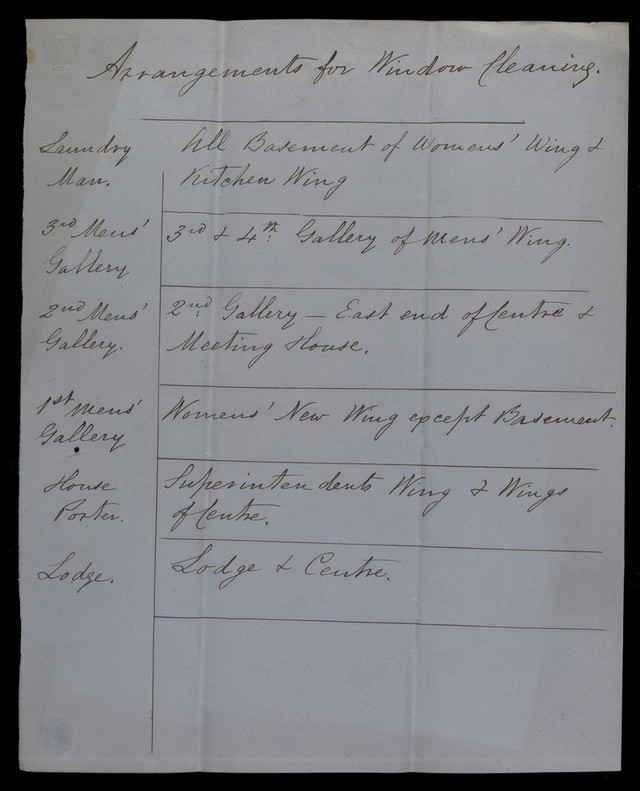 Arrangements for Window Cleaning.
Laundry Man.
All Basement of Womens' Wing &
Kitchen Wing
3rd Mens' Gallery
3rd & 4th Gallery of Mens' Wing.
2nd Mens' Gallery.
2nd Gallery – East end of Centre &
Meeting House.
1st Mens' Gallery
Womens' New Wing except Basement.
House Porter.
Superintendents Wing & Wings
of Centre.
Lodge.
Lodge & Centre.